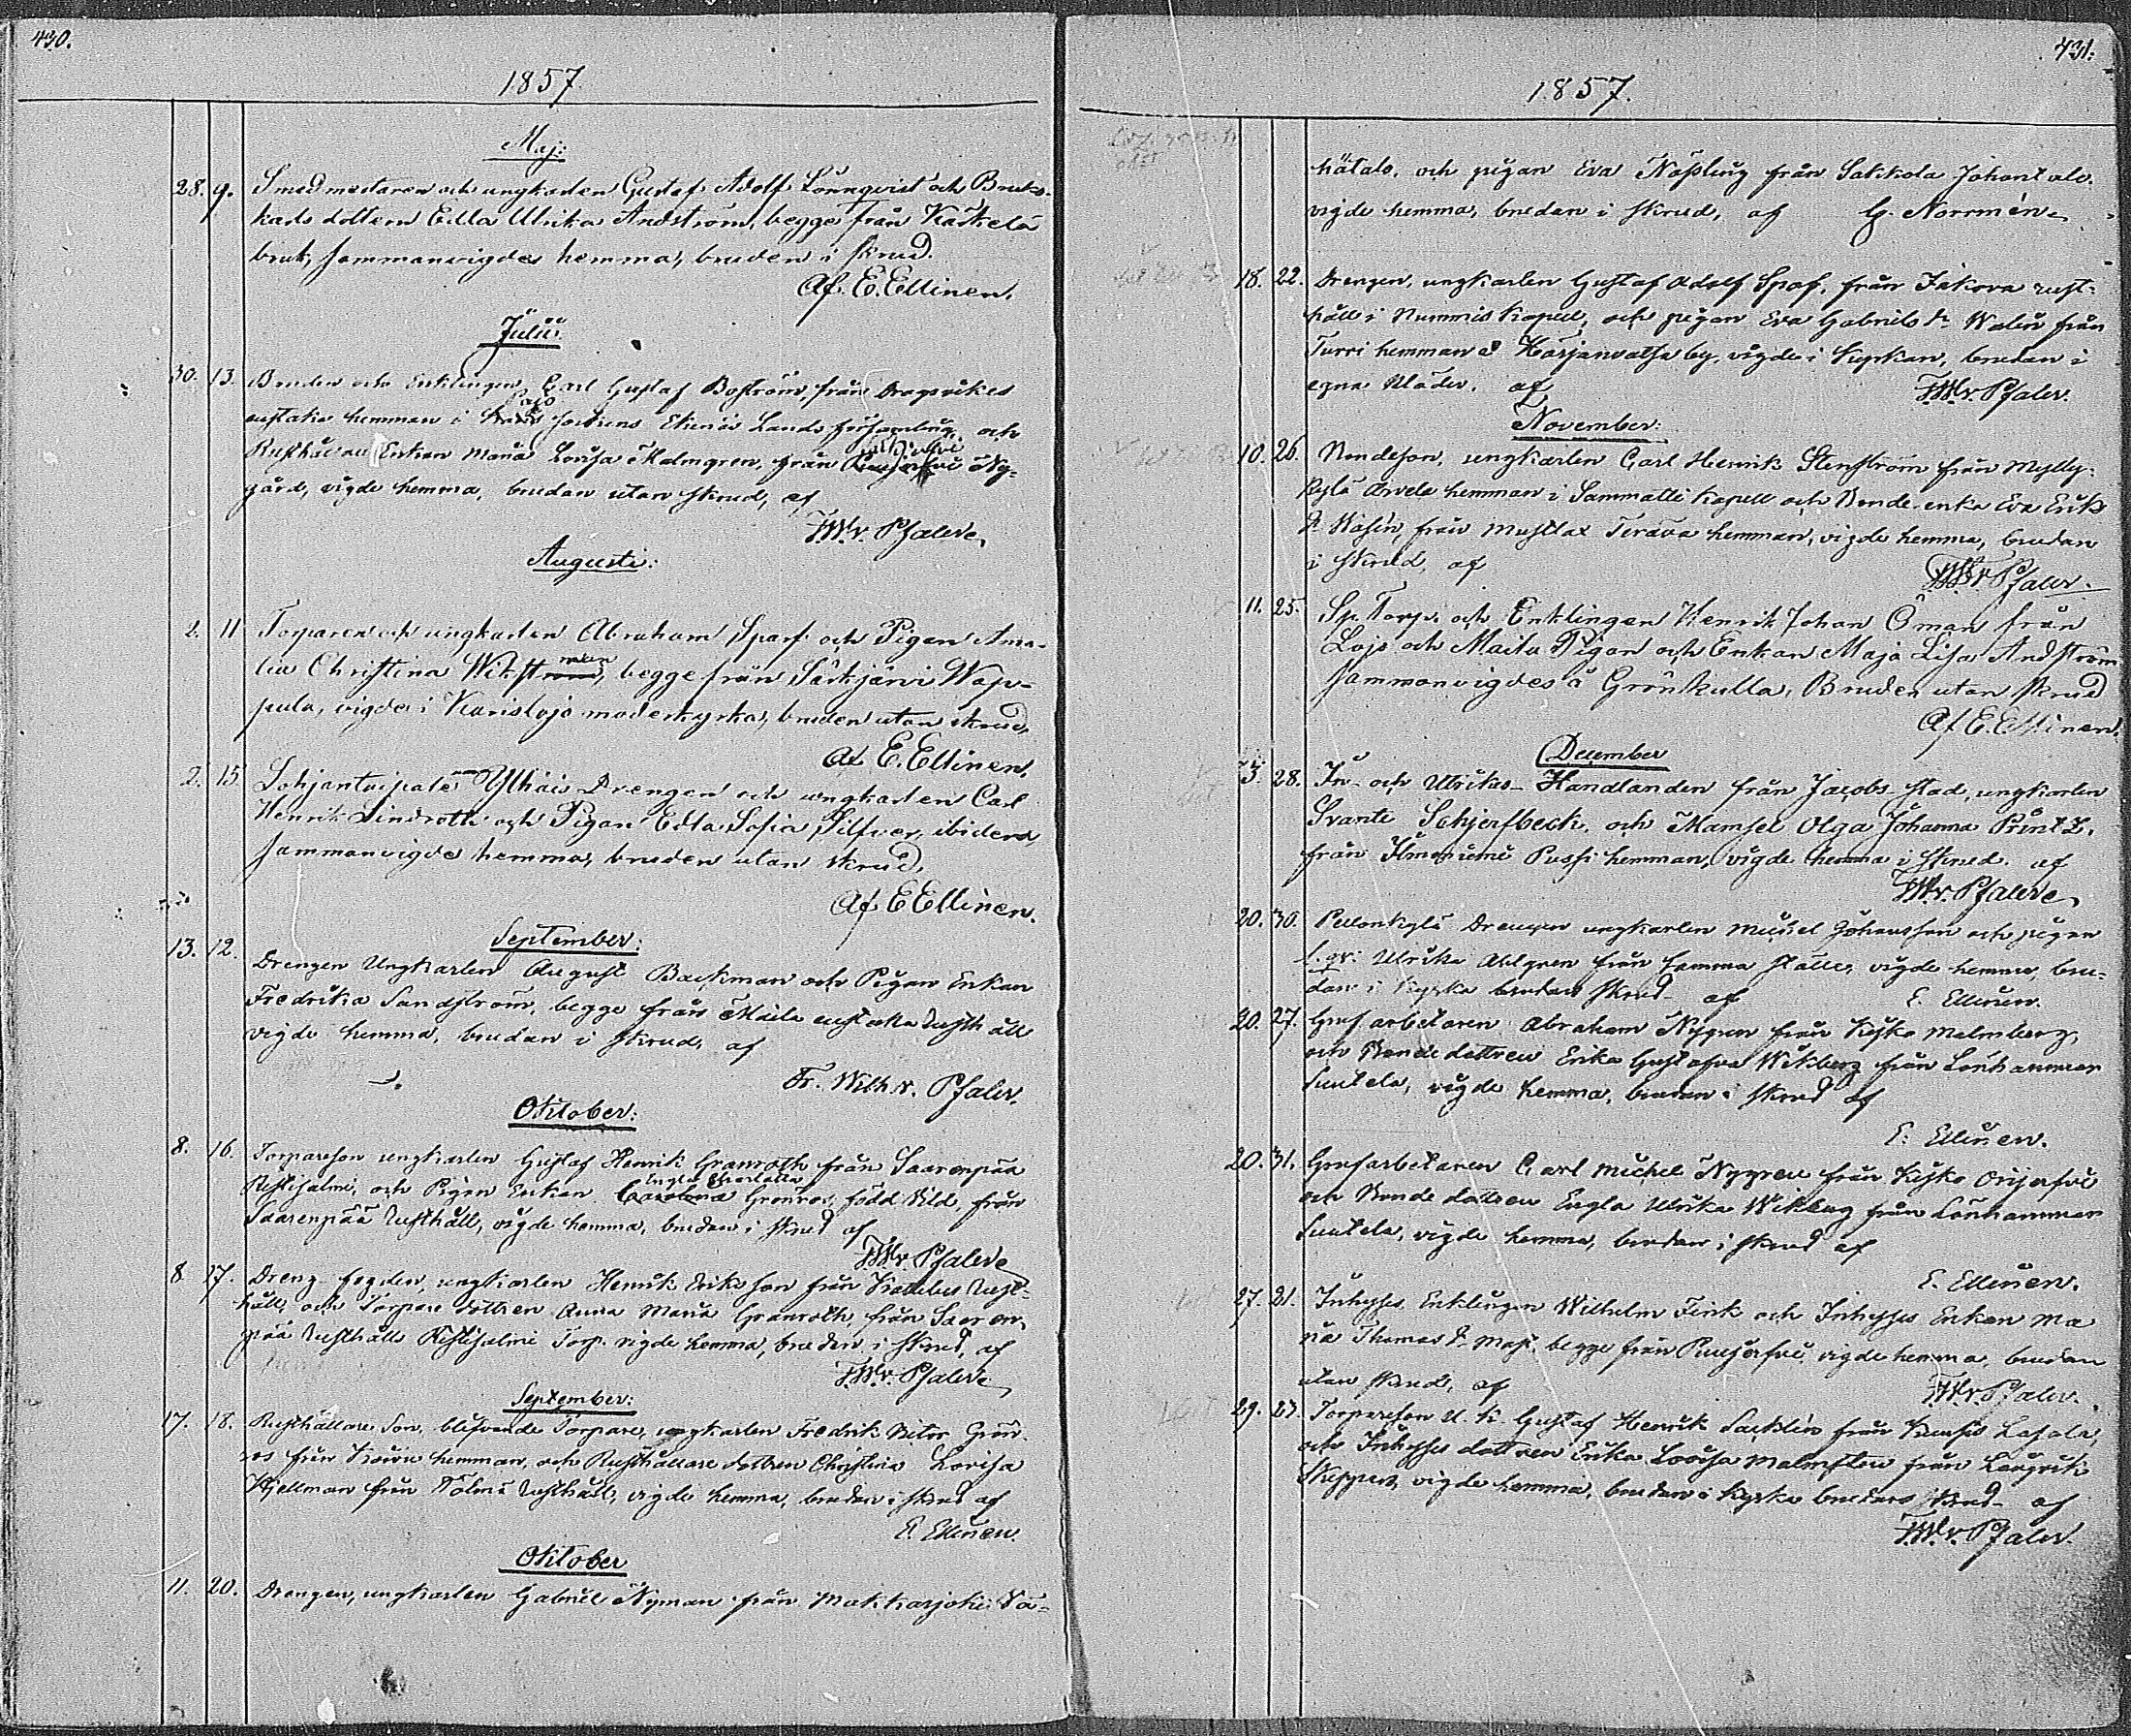 430.
1857.
Maj:
28. 9. Smedmästaren och ungkarlen Gustaf Adolf Lönnqvist och Bruks-
karls dottern Edla Ulrika Andström, begge från Kärkelä
bruk, sammanvigdes hemma, bruden i skrud.
Af. E. Ellinen.
Julii:
30. 13. Bonden och Enklingen Carl Gustaf Boström, från Dragsvikes
hemman i Sockens Ekenäs Lands församling, och
Enkan Maria Lovisa Malmgren, från Ny-
gård, vigde hemma, brudan utan skrud, af
F.W.v. Pfaler.
Augusti:
2. 11 Torparen och ungkarlen Abraham Sparf och Pigan Ama-
lia Christina Wikstman, begge från Särkjärvi Wap-
pula, vigde i Karislojo moderkyrka, bruden utan skrud,
af E. Ellinen.
2. 15 Ylhäis Drengen och ungkarlen Carl
Henrik Lindroth och Pigan Edla Sofia Silfver, ibidem,
sammanvigde hemma, bruden utan skrud,
Af E Ellinen.
September:
13. 12. Drengen Ungkarlen August Backman och Pigan Enkan
Fredrika Sandström, begge från Maila rusthåll
vigde hemma, brudan i skrud, af
Fr. Wilh. v. Pfaler.
Oktober:
8. 16. Torpareson ungkarlen Gustaf Henrik Granroth från Saarenpää
Ristisalmi, och Pigan Enkan Engla Charlotta Grönroos, född Vild, från
Saarenpää Rusthåll, vigde hemma, brudan i skrud af
F.W.v. Pfaler
8 17. Dreng-fogden, ungkarlen Henrik Eriksson från Rust-
håll, och Torpare dottren Anna Maria Granroth, från Saaren-
pää Rusthålls Ristisalmi Torp. vigde hemma, brudan i skrud, af
F.W.v. Pfaler
September:
17. 18. Rusthållare Son, blifvande Torpare, ungkarlen Fredrik Viktor Grön-
ros från hemman, och Rusthållare dottren Christina Lovisa
Hjellman från rusthåll, vigde hemma, brudan i skrud af
E. Ellinen.
Oktober
11. 20. Drengen, ungkarlen Gabriel Nyman från Makkarjoki
431.
1857.
och pigan Eva Näsling från Sakkola Johantalo.
vigde hemma, brudan i skrud, af G. Norrmén.
18. 22. Drengen, ungkarlen Gustaf Adolf Spof, från Jakova rust-
håll i Nummis Kapell, och pigan Eva Gabriels dr Walin från
Turri hemman i Harjanvatsa by, vigde i Kyrkan, brudan i
egna kläder. af F.W.v. Pfaler.
November:
10. 26. Bondeson, ungkarlen Carl Henrik Stenström från Mylly-
kylä Arvela hemman i Sammatti Kapell och Bonde enka Eva Eriks
dr Wasén, från Mustlax Terava hemman, vigde hemma, brudan
i skrud, af F.W.v. Pfaler.
11. 25. Sp. Torp. och Enklingen Henrik Johan Öman från
Lojo och Maila Pigan och Enkan Maja Lisa Andström
sammanvigdes å Grönkulla, Bruden utan skrud
Af E. Ellinen.
December
3. 28. In- och Utrikes- Handlanden från Jacobs-stad, ungkarlen
Svante Schjerfbeck, och Mamsel Olga Johanna Printz,
från Ilmoniemi Pussi hemman, vigde hemma i skrud. af
F.W.v. Pfaler
20. 30. Pellonkylä Drengen ungkarlen Michel Johansson och pigan
Ulrika Ahlgren från samma ställe, vigde hemma, bru-
dan i kyrko brudars skrud af E. Ellinen.
20. 27. Grufarbetaren Abraham Nygren från Kisko Malmberg,
och Bonde dottren Erika Gustafva Wikberg från Lönhammar
Suutela, vigde hemma, brudan i skrud af
E. Ellinen.
20. 31. Grufarbetaren Carl Michel Nygren från Kisko Orijerfvi
och Bonde dottren Engla Ulrika Wikberg från Lönhammar
Suutela, vigde hemma, brudan i skrud af
E. Ellinen.
27. 21. Inhyses Enklingen Wilhelm Fink och Inhyses Enkan Ma-
ria Thomas dr begge från Puujerfvi, vigde hemma, brudan
utan skrud, af F.W.v. Pfaler.
29. 23. Torpareson U. K. Gustaf Henrik Sacklén från Lasala,
och Inhyses dottren Erika Lovisa Malmsten från
vigde hemma, brudan i kyrko brudars skrud af
F.W.v. Pfaler.